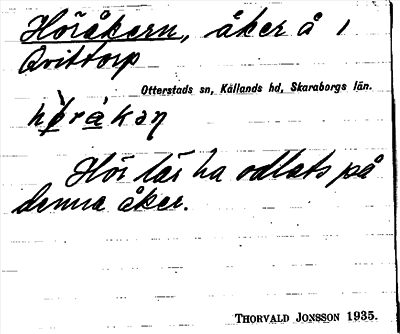 Höråkern, åker å 1
Qvittorp
Otterstads sn, Kållands hd, Skaraborgs län.
Hör lär ha odlats på
denna åker.
THORVALD JONSSON 1935.